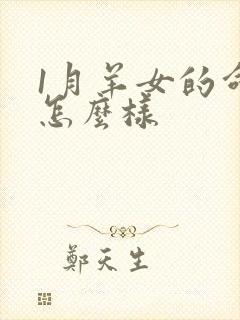 1月羊女的命
怎麼樣
鄭天生